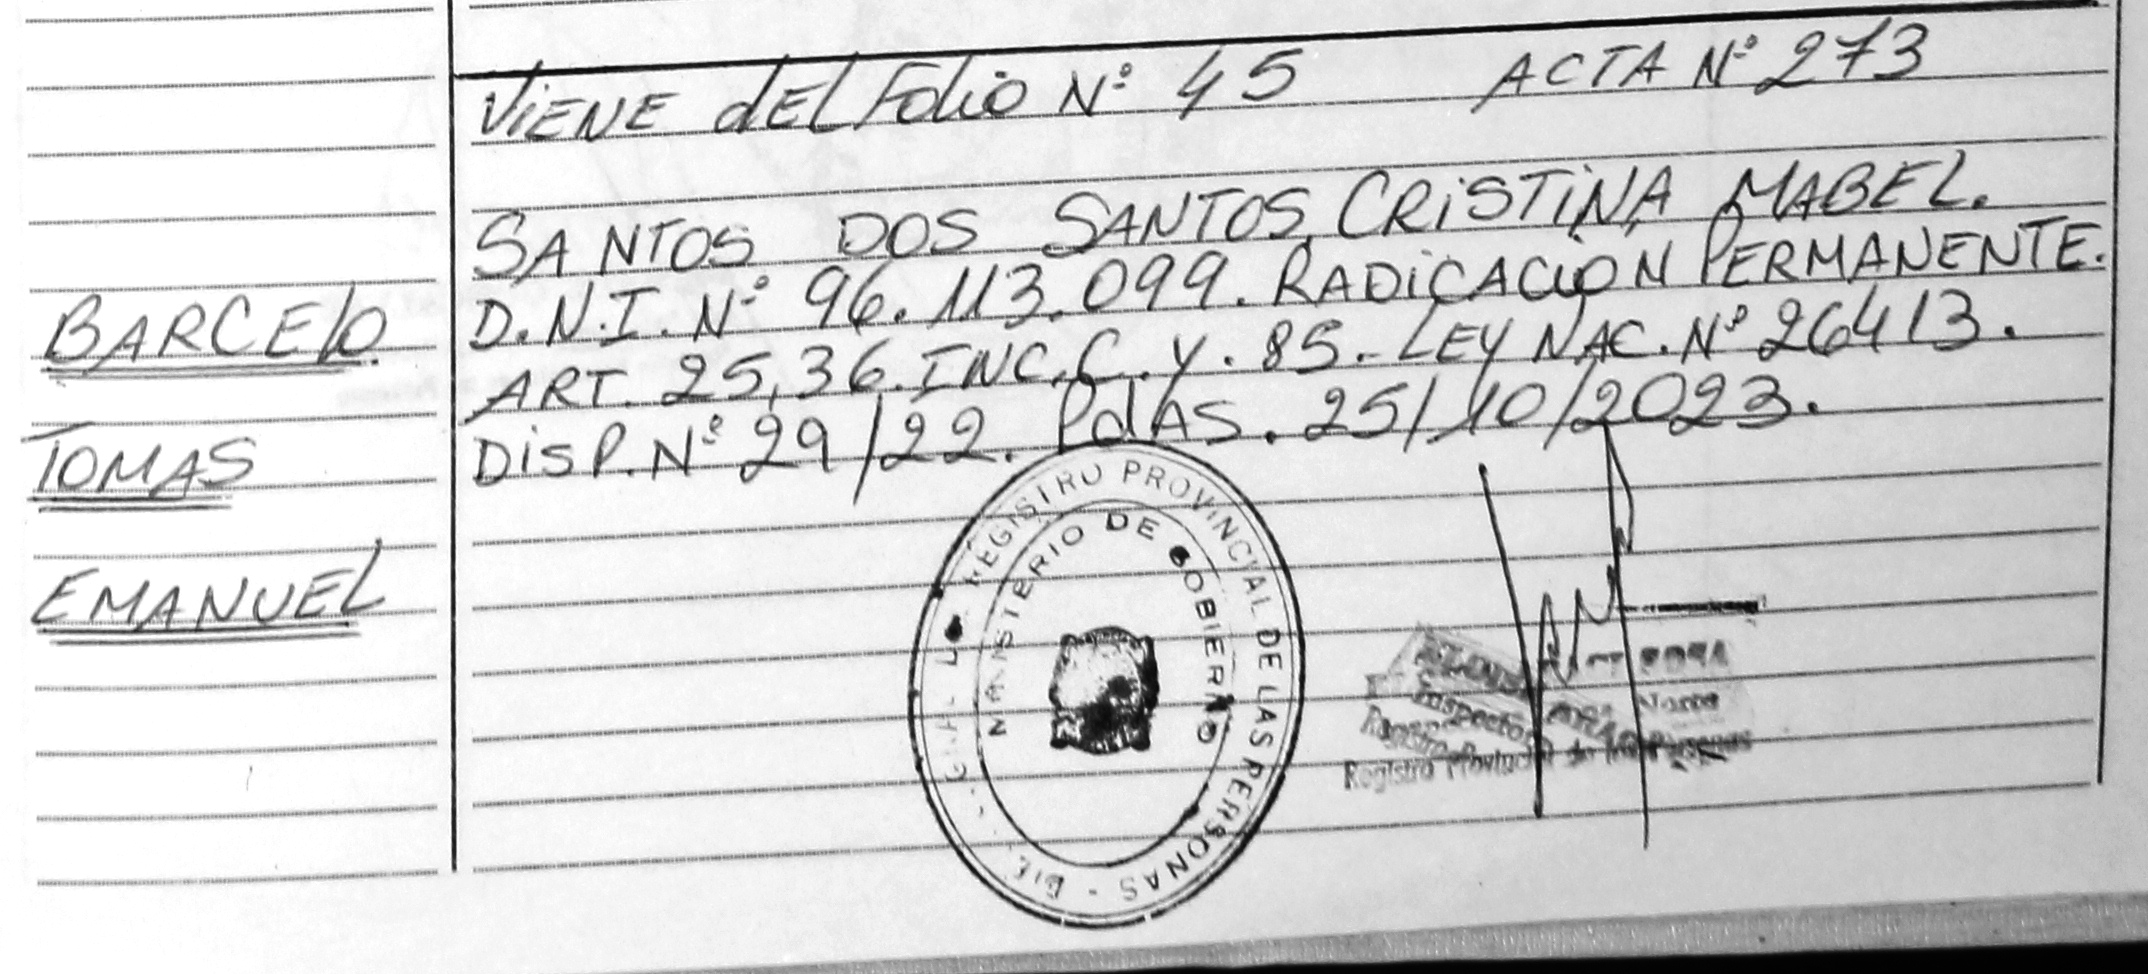 ViENE dEL Folio Nº 45 ACTA Nº 273
SANTOS DOS SANTOS, CRiSTiNA MABEL.
D.N.I. Nº 96.113.099. RADiCACiÓN PERMANENTE.
ART. 25,36. INC.C. Y. 85. LEY NAC. Nº 26413.
DiSP. Nº 29/22. PdAS. 25/10/2023.
BARCELO
TOMAS
EMANUEL
REGISTRO PROVINCIAL DE LAS PERSONAS -
MINISTERIO DE GOBIERNO
Inspector Norte
Registro Provincial de las Personas